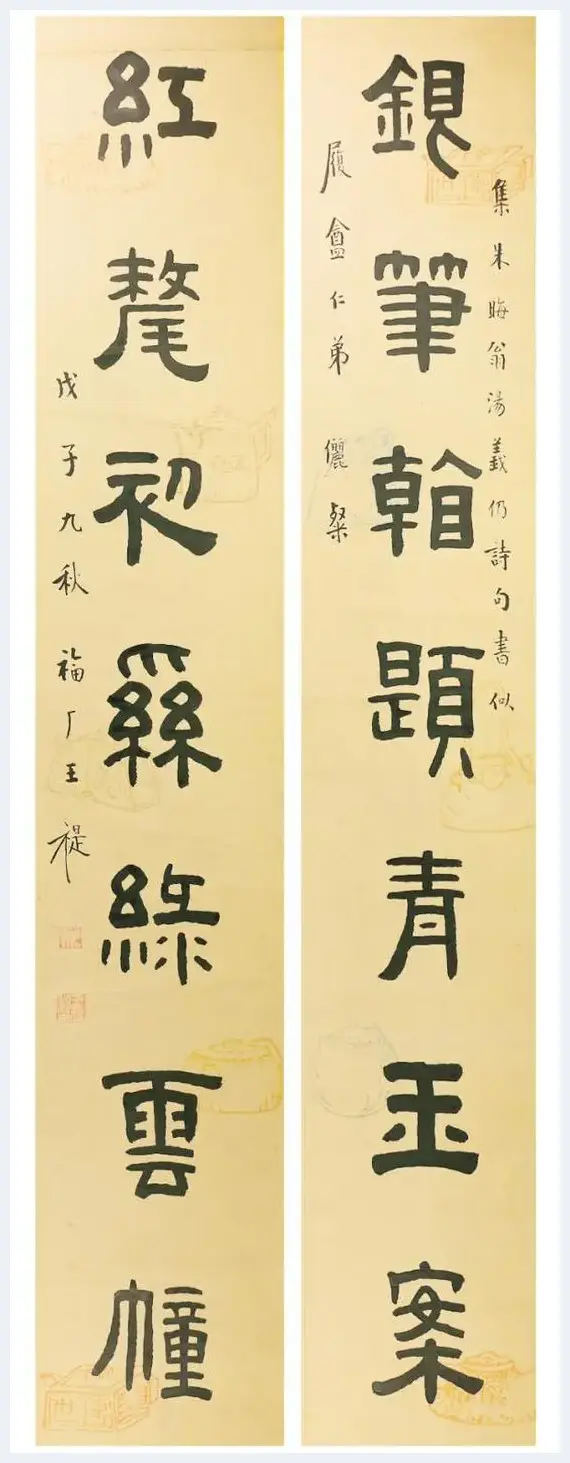 集朱晦翁湯義仍詩句書似
銀筆翰題青玉案
履盦仁弟儷粲
紅氂初綠雲幢
戊子九秋福厂王禔